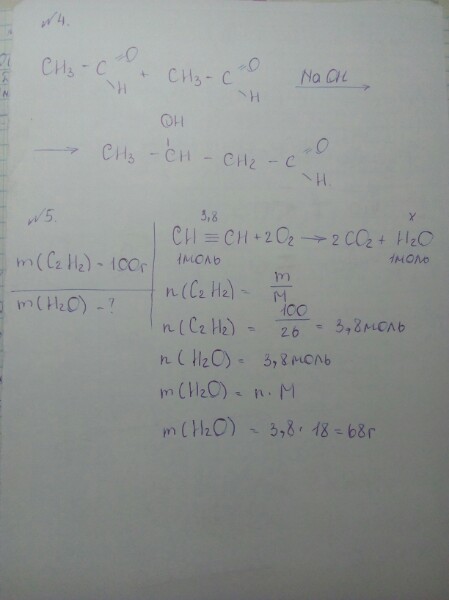 №4.
CH₃ - C =O -H + CH₃ - C =O -H NaOH →
→ CH₃ - CH(OH) - CH₂ - C =O -H.
№5.
m(C₂H₂) = 100г
m(H₂O) - ?
3,8 x
CH ≡ CH + 2O₂ → 2CO₂ + H₂O
1моль 1моль
n(C₂H₂) = m/M
n(C₂H₂) = 100/26 = 3,8моль
n(H₂O) = 3,8моль
m(H₂O) = n · M
m(H₂O) = 3,8 · 18 = 68г